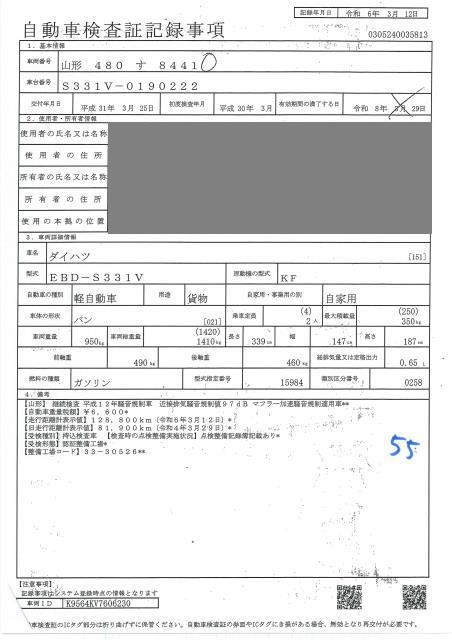 記録年月日 令和 6年 3月 12日
自動車検査証記録事項
0305240035813
1. 基本情報
車両番号 山形 480 す 8441
車台番号 S331V-0190222
交付年月日 平成 31年 3月 25日 初度検査年月 平成 30年 3月 有効期間の満了する日 令和 8年 3月 29日
2. 使用者・所有者情報
使用者の氏名又は名称
使用者の住所
所有者の氏名又は名称
所有者の住所
使用の本拠の位置
3. 車両詳細情報
車名 ダイハツ [151]
型式 EBD-S331V 原動機の型式 KF
自動車の種別 軽自動車 用途 貨物 自家用・事業用の別 自家用
車体の形状 バン [021] 乗車定員 (4) 2人 最大積載量 (250) 350kg
車両重量 950kg 車両総重量 (1420) 1410kg 長さ 339cm 幅 147cm 高さ 187cm
前軸重 490kg 後軸重 460kg 総排気量又は定格出力 0.65 L
燃料の種類 ガソリン 型式指定番号 15984 類別区分番号 0258
4. 備考
【山形】 継続検査 平成12年騒音規制車 近接排気騒音規制値97dB マフラー加速騒音規制適用車**
【自動車重量税額】¥6,600*
【走行距離計表示値】128,800km(令和6年3月12日)*
【旧走行距離計表示値】81,900km(令和4年3月29日)*
【受検種別】持込検査車 【検査時の点検整備実施状況】点検整備記録簿記載あり*
【受検形態】認証整備工場*
【整備工場コード】33-30526**
55
【注意事項】
記録事項はシステム登録時点の情報となります
車両ID K9564KV7606230
車検査証のICタグ部分は折り曲げずに保管ください。自動車検査証の券面やICタグにき損がある場合、無効となり再交付が必要です。